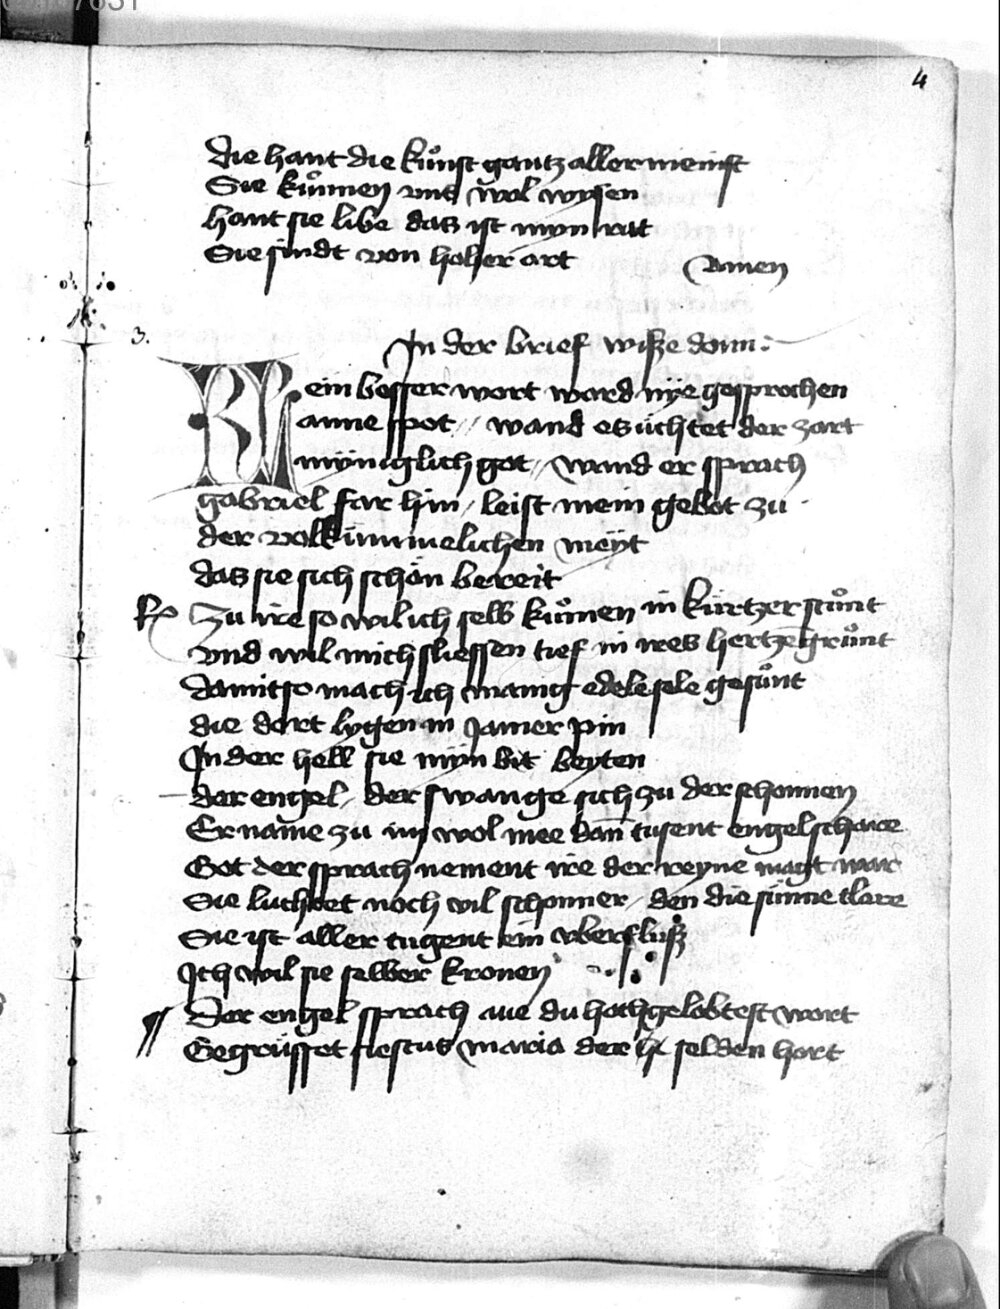 4
Die hant die kůnst gantz aller meinst
Sie kůmen vns wol wysen
hant sie libe das ist myn ratt
Sie sindt von hoher art Amen
3. In der brief wiße don :
Kein besser wort ward nÿe gesprochen
anne spot // wand es tichtet der zart
mÿniglich got // wand er sprach
gabriel far hin / leist mein gebot zu
der volkümmelichen meÿt
das sie sich schön bereit
Zu ire so wil ich selb kůmen in kürtzer stůnt
vnd wil mich sliessen tief in ires hertzē grůnt
damit so mach ich mainig edele sele gesůnt
die dort lygen in Jamer pin
In der hell sie mÿn bit beyten
der engel / der swange sich zu der schonnen
Er name zu im wol mee dan tusent engelschare
Got der sprach nement ire der reyne magt war
Sie luchtet noch vil schonner / den die sünne clare
Sie ist aller tugent ein vberfluß
Ich wil sie selber kronen
Der engel sprach aue du hochgelobtest wort
Gegrüsset siestus maria der selden hort